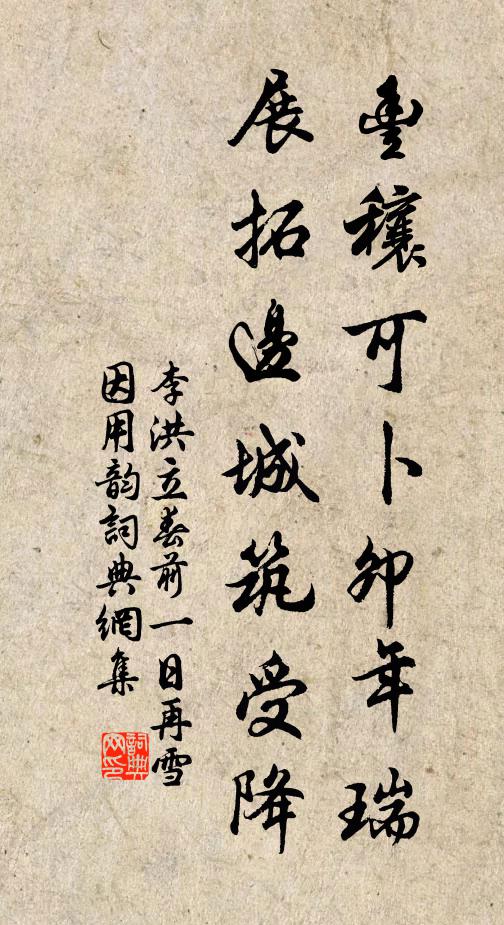 豐穰可卜卯年瑞
展拓邊城筑受降
李洪立春前一日再雪
因用韵詞典網集
詞典網印